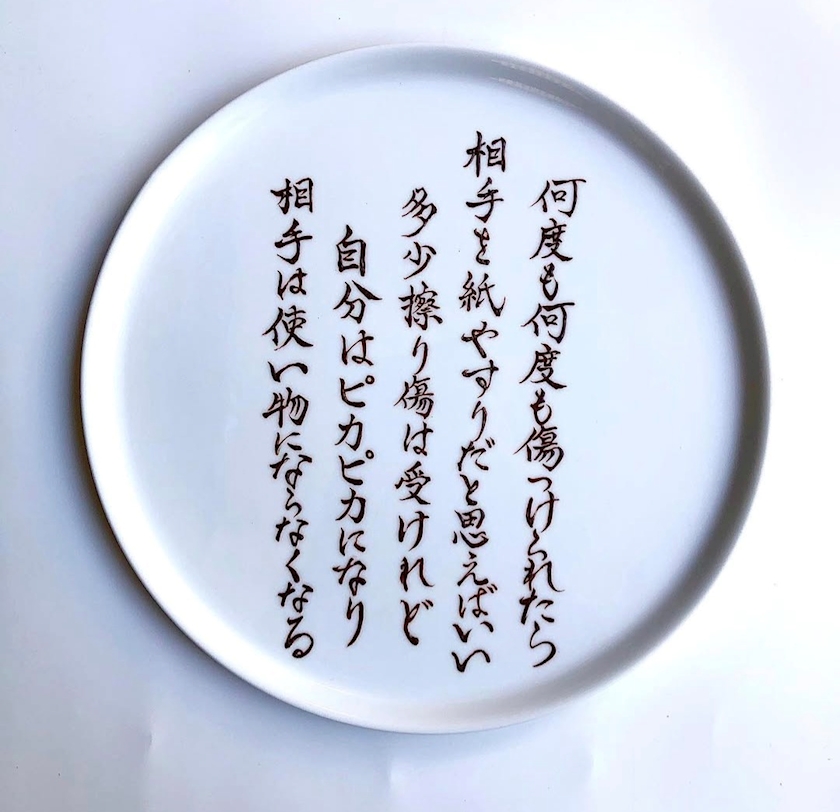 何度も何度も傷つけられたら
相手を紙やすりだと思えばいい
多少擦り傷は受けれど
自分はピカピカになり
相手は使い物にならなくなる